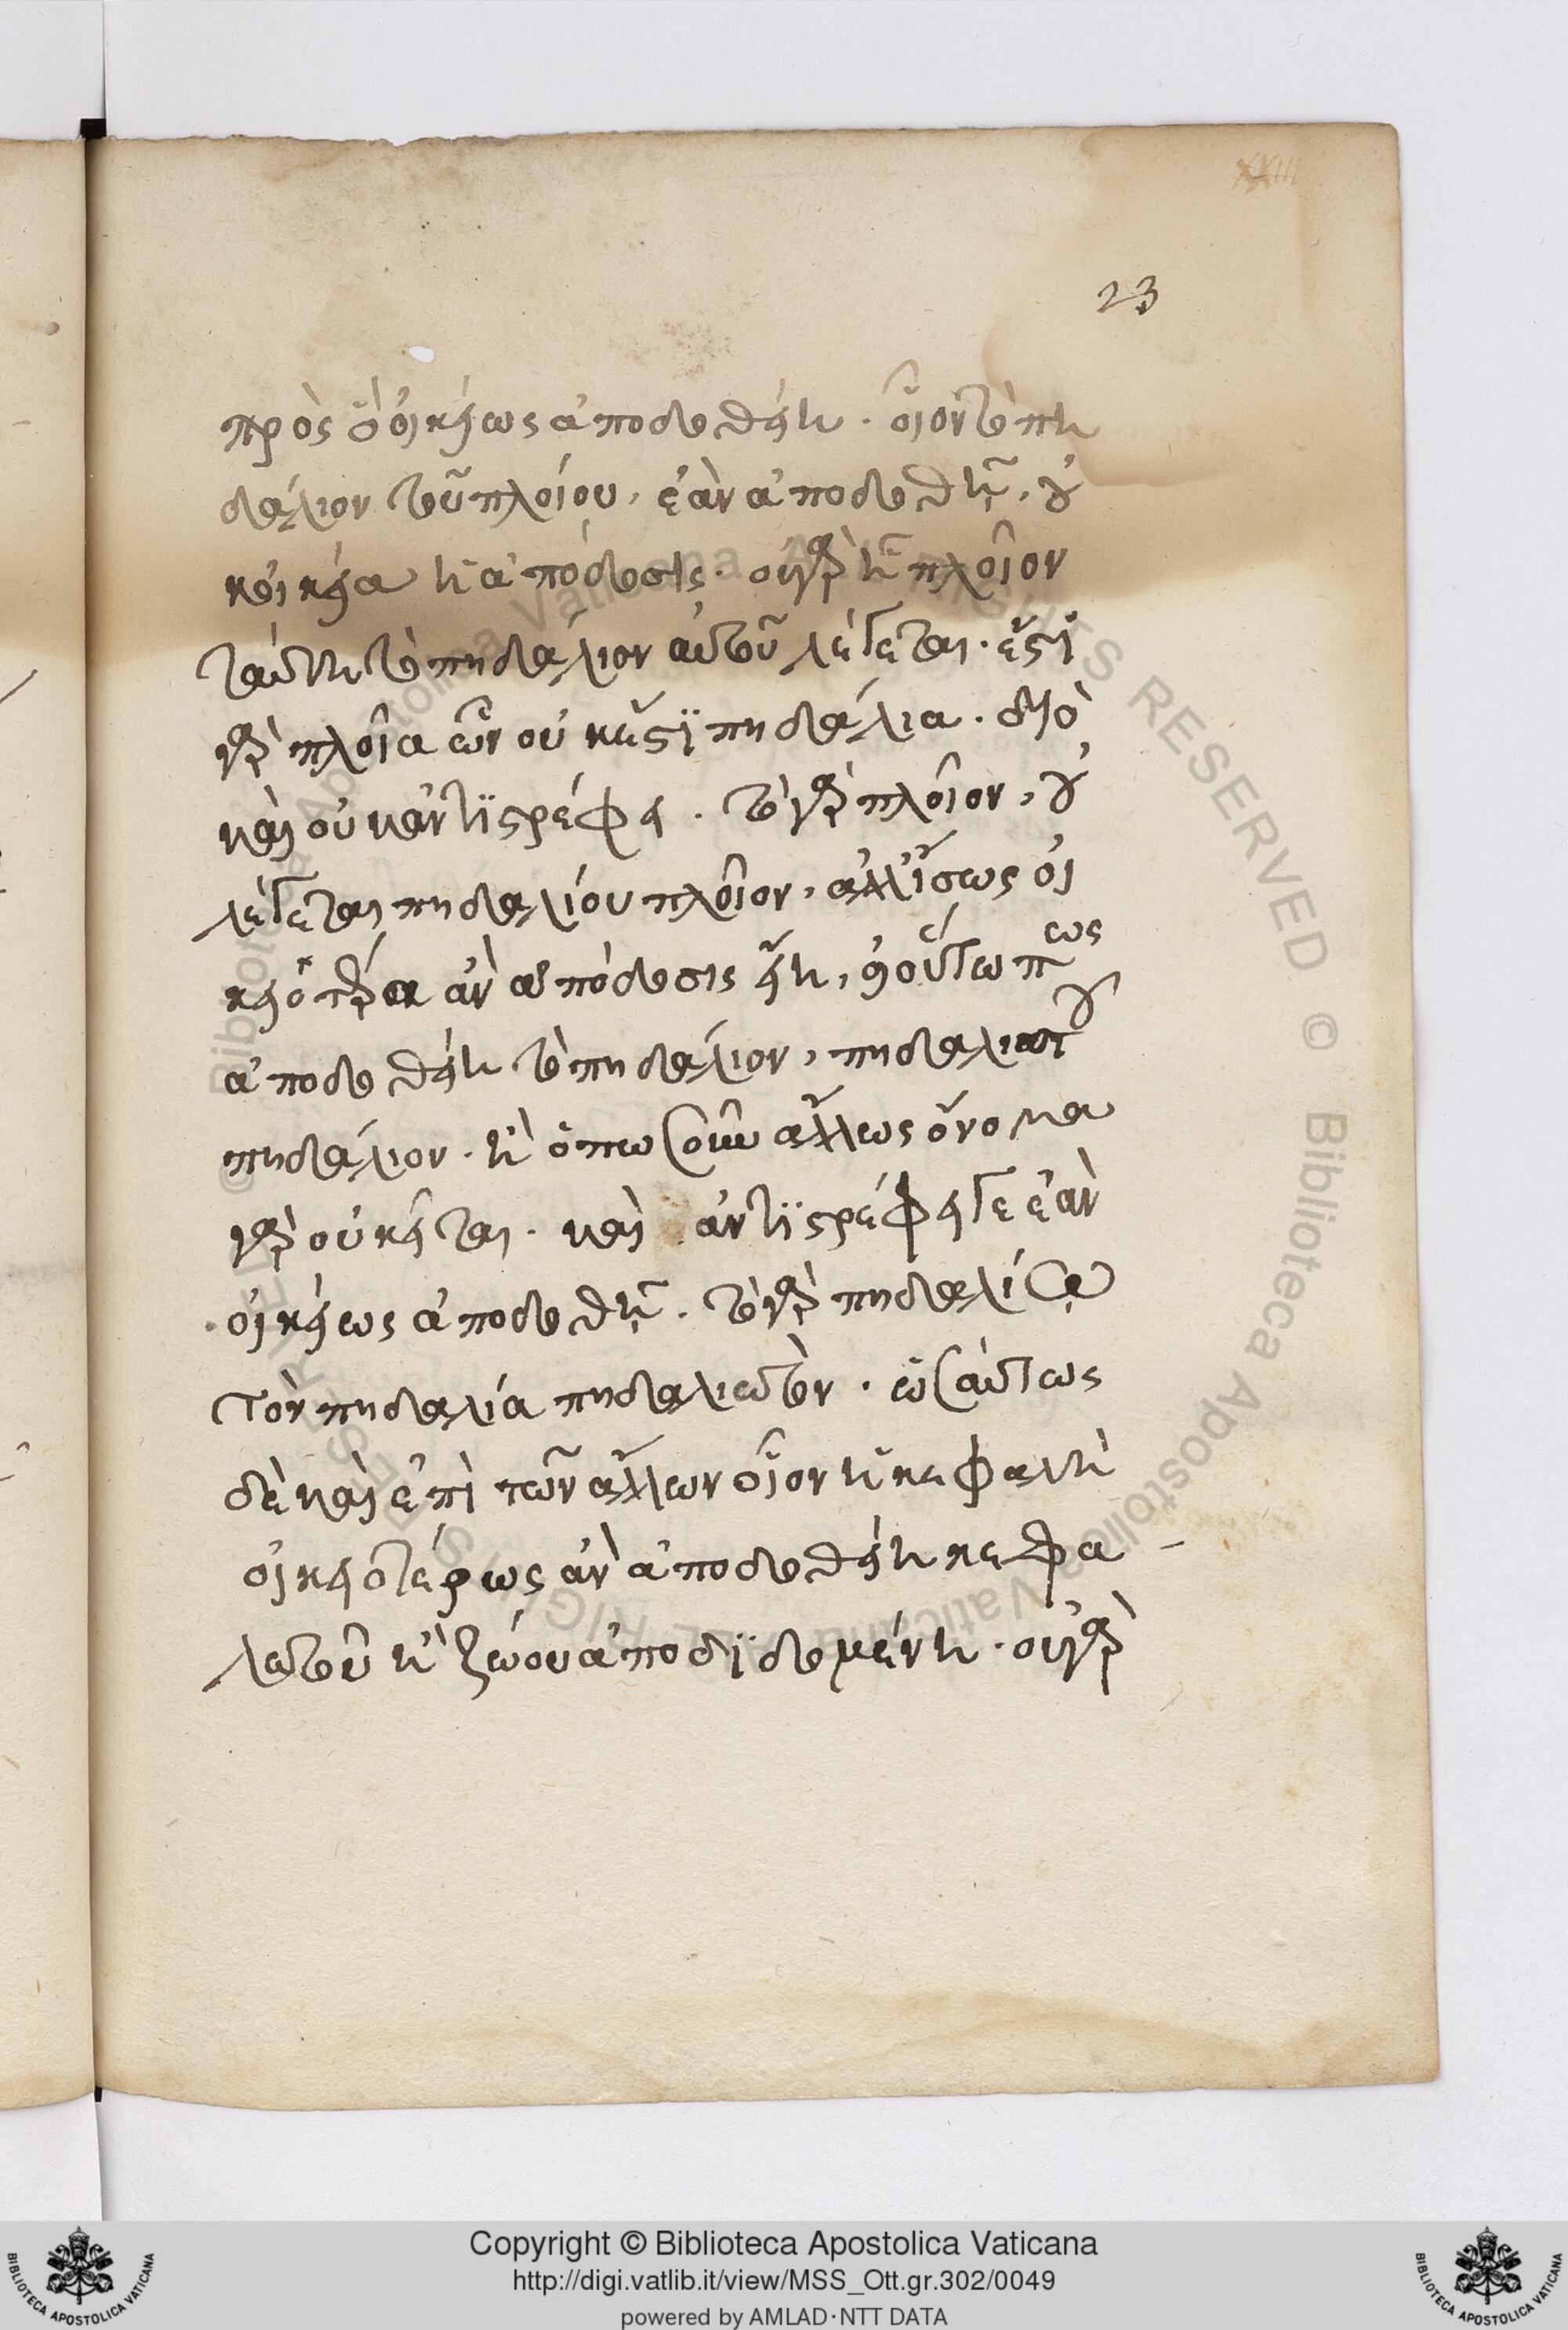 XXIII
23
πρὸς ὃ οἰκείως ἀποδοθείη. οἷον τὸ πη
δάλιον τοῦ πλοίου, ἐὰν ἀποδοθῇ, οὐ
κ οἰκεία ἡ ἀπόδοσις. οὐ γὰρ ᾗ πλοῖον
ταύτη τὸ πηδάλιον αὐτοῦ λέγεται. ἔστι
γὰρ πλοῖα ὧν οὐκ ἔστι πηδάλια. διὸ
καὶ οὐκ ἀντιστρέφει. τὸ γὰρ πλοῖον, οὐ
λέγεται πηδαλίου πλοῖον, ἀλλ' ἴσως οἰ
κειοτέρα ἂν ἀπόδοσις εἴη, εἰ οὕτω πως
ἀποδοθείη τὸ πηδάλιον, πηδαλιωτοῦ
πηδάλιον. ἢ ὁπωσοῦν ἄλλως ὄνομα
γὰρ οὐ κεῖται. καὶ ἀντιστρέφει γε ἐὰν
οἰκείως ἀποδοθῇ. τὸ γὰρ πηδαλιω
τὸν πηδαλίω πηδαλιωτὸν. ὡσαύτως
δὲ καὶ ἐπὶ τῶν ἄλλων οἷον ἡ κεφαλὴ
οἰκειοτέρως ἂν ἀποδοθείη κεφα
λωτοῦ ἢ ζώου ἀποδιδομένη. οὐ γὰρ
Copyright © Biblioteca Apostolica Vaticana
http://digi.vatlib.it/view/MSS_Ott.gr.302/0049
powered by AMLAD·NTT DATA